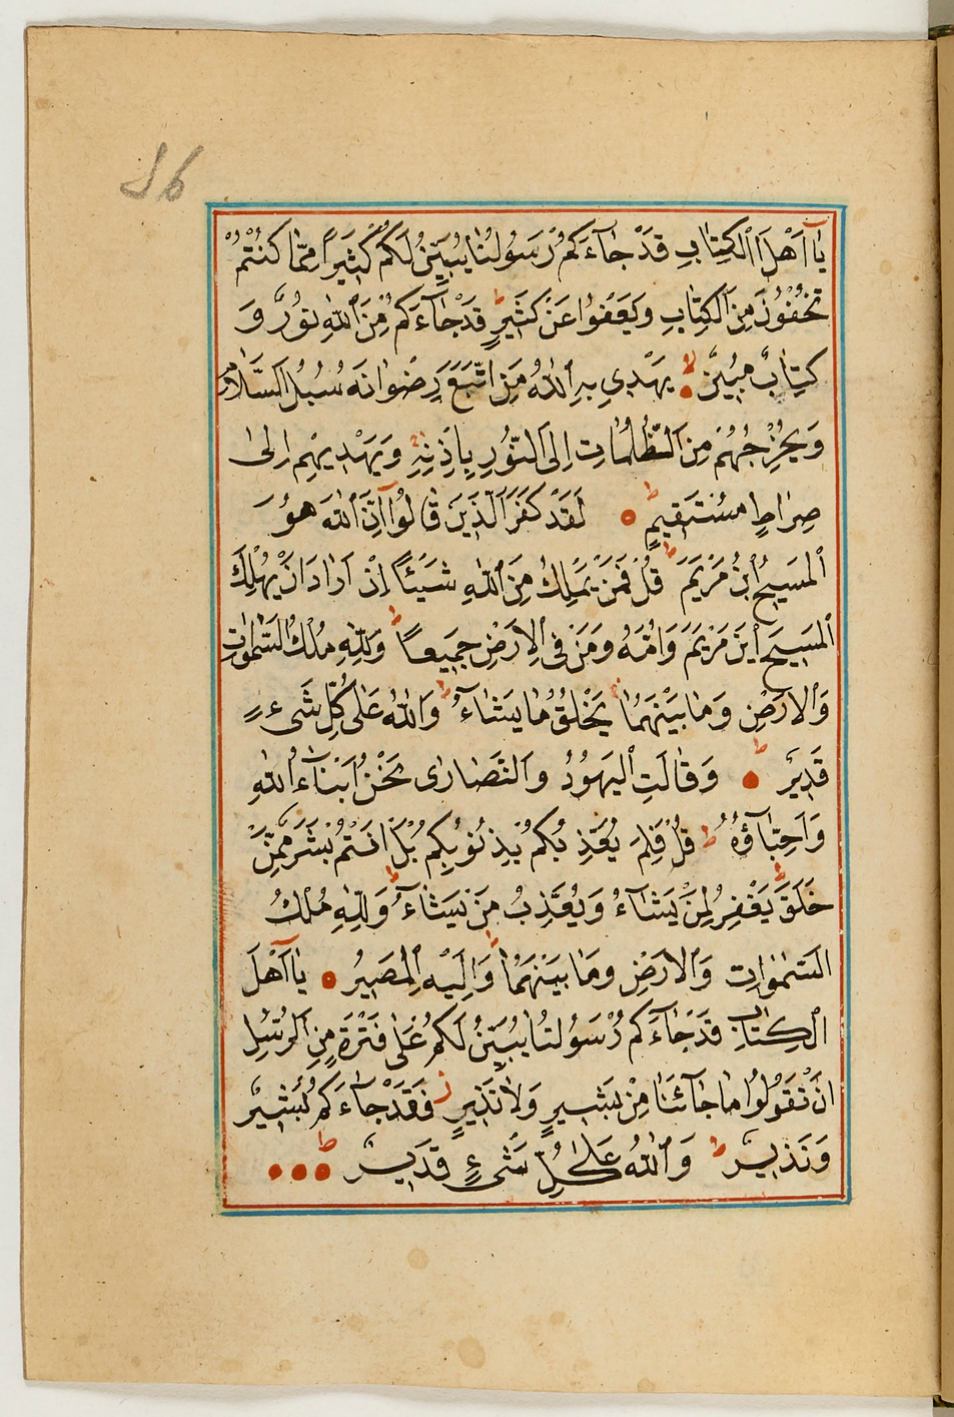 96
يَاآ اَهْلَ اْلكِتَابِ قَدْ جَاۤءَكُمْ رَسُولُنَا يُبَيِّنُ لَكُمْ كَثِيرًا مِمَّا كُنْتُمْ
تُخْفُونَ مِنَ الْكِتَابِ وَيَعْفُوا عَنْ كَثِيرٍ ط قَدْ جَاۤءَكُمْ مِنَ اللّٰهِ نُورٌ وَ
كِتَابٌ مُبِينٌ لا يَهْدِى بِهِ اللّٰهُ مَنِ اتَّبَعَ رِضْوَانَهُ سُبُلَ السَّلَامِ
وَيُخْرِجُهُمْ مِنَ الظُّلُمَاتِ اِلَى النُّورِ بِاِذْنِهِ وَيَهْدِيهِمْ اِلىٰ
صِرَاطٍ مُسْتَقِيمٍ ط لَقَدْ كَفَرَ الَّذِينَ قَالُوٓا اِنَّ اللّٰهَ هُوَ
الْمَسِيحُ ابْنُ مَرْيَمَ ط قُلْ فَمَنْ يَمْلِكُ مِنَ اللّٰهِ شَيْئًا اِنْ اَرَادَ اَنْ يُهْلِكَ
الْمَسِيحَ ابْنَ مَرْيَمَ وَاُمَّهُ وَمَنْ فِى الْاَرْضِ جَمِيعًا ط وَلِلّٰهِ مُلْكُ السَّمٰوَاتِ
وَالْاَرْضِ وَمَا بَيْنَهُمَا ط يَخْلُقُ مَا يَشَاۤءُ ط وَاللّٰهُ عَلٰى كُلِّ شَىْءٍ
قَدِيرٌ ط وَقَالَتِ الْيَهُودُ وَالنَّصَارٰى نَحْنُ اَبْنَاۤءُ اللّٰهِ
وَاَحِبَّاۤؤُهُ ط قُلْ فَلِمَ يُعَذِّبُكُمْ بِذُنُوبِكُمْ بَلْ اَنْتُمْ بَشَرٌ مِمَّنْ
خَلَقَ ط يَغْفِرُ لِمَنْ يَشَاۤءُ وَيُعَذِّبُ مَنْ يَشَاۤءُ ط وَلِلّٰهِ مُلْكُ
السَّمٰوَاتِ وَالْاَرْضِ وَمَا بَيْنَهُمَا وَاِلَيْهِ الْمَصِيرُ يَاآ اَهْلَ
الْكِتَابِ قَدْ جَاۤءَكُمْ رَسُولُنَا يُبَيِّنُ لَكُمْ عَلٰى فَتْرَةٍ مِنَ الرُّسُلِ
اَنْ تَقُولُوا مَا جَاۤئَنَا مِنْ بَشِيرٍ وَلَا نَذِيرٍ ز فَقَدْ جَاۤءَكُمْ بَشِيرٌ
وَنَذِيرٌ ط وَاللّٰهُ عَلٰى كُلِّ شَىْءٍ قَدِيرٌ ط